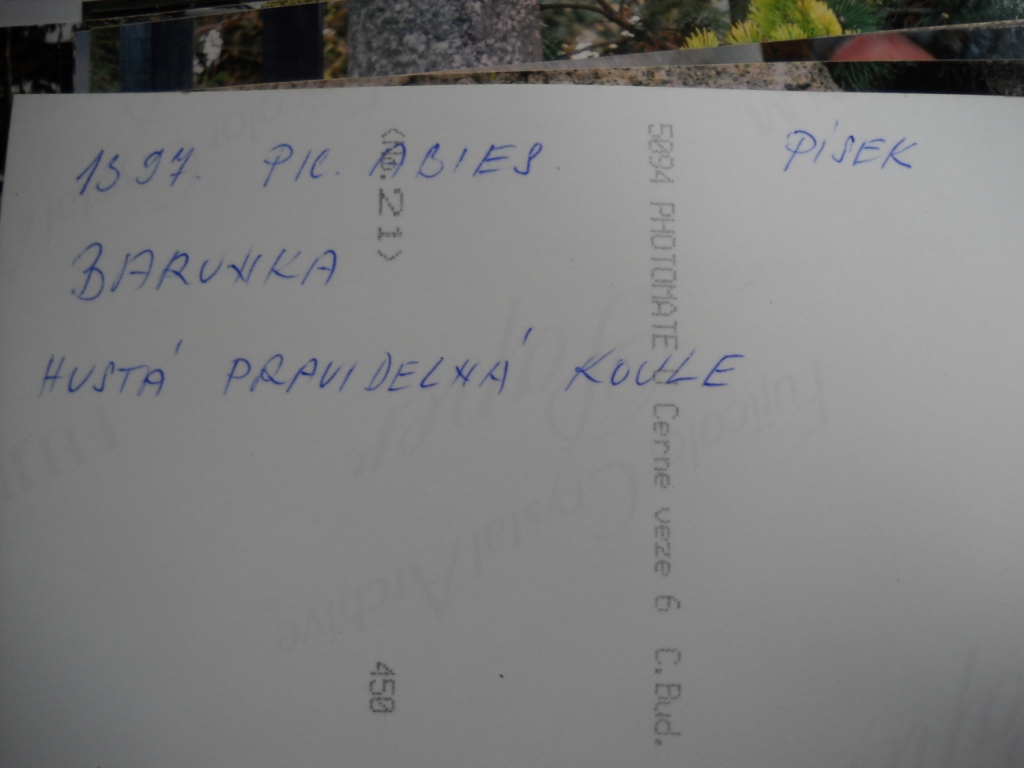 1397. PIC. ABIES PÍSEK
BARUNKA
HUSTÁ PRAVIDELNÁ KOULE
<No.21>
450
5094 PHOTOMATE U Cerne veze 6 C.Bud.
Fujicolor
Crystal Archive
Paper